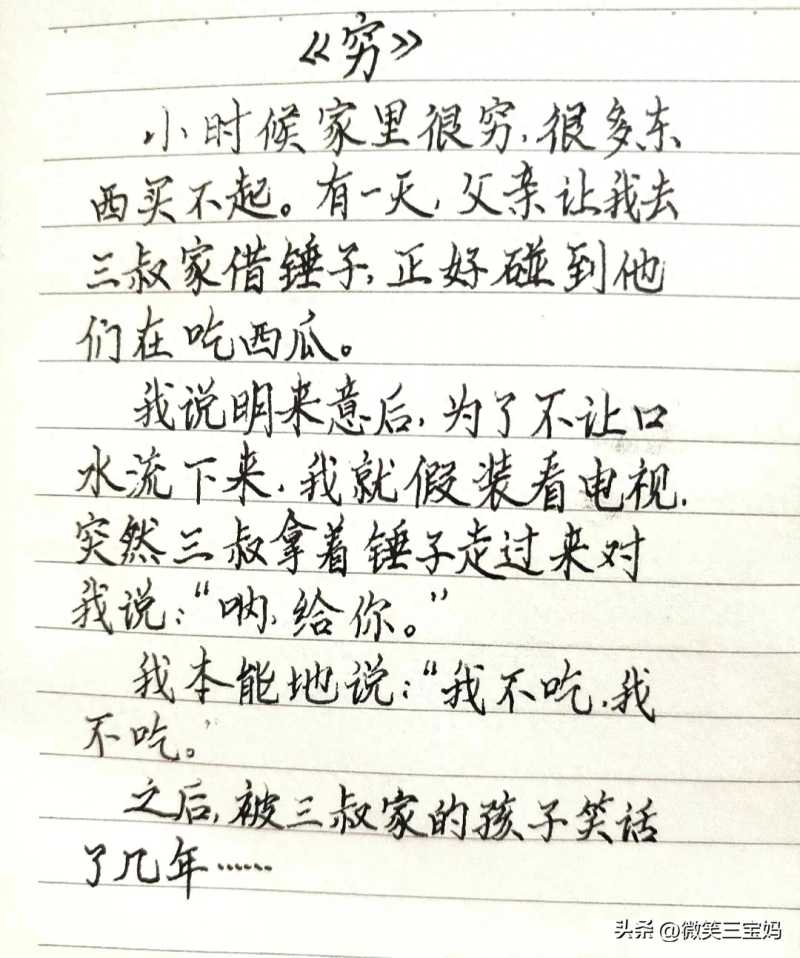 《穷》
小时候家里很穷,很多东
西买不起。有一天,父亲让我去
三叔家借锤子,正好碰到他
们在吃西瓜。
我说明来意后,为了不让口
水流下来,我就假装看电视.
突然三叔拿着锤子走过来对
我说:“呐,给你。”
我本能地说:“我不吃,我
不吃。”
之后,被三叔家的孩子笑话
了几年……
头条 @微笑三宝妈